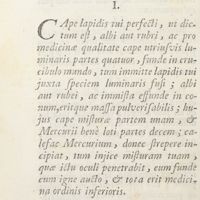 I.
CApe lapidis tui perfecti, ut dic-
tum est, albi aut rubri, ac pro
medicinæ qualitate cape utriusvis lu-
minaris partes quatuor, funde in cru-
cibulo mundo, tum immitte lapidis tui
juxta speciem luminaris fusi; albi
aut rubri, ac immissa effunde in co-
num, eritque massa pulverisabilis; hu-
jus cape misturæ partem unam, &
Mercurii benè loti partes decem; ca-
lefac Mercurium, donec strepere in-
cipiat, tum injice misturam tuam,
quæ ictu oculi penetrabit, eum funde
eum igne aucto, & tota erit medici-
na ordinis inferioris.